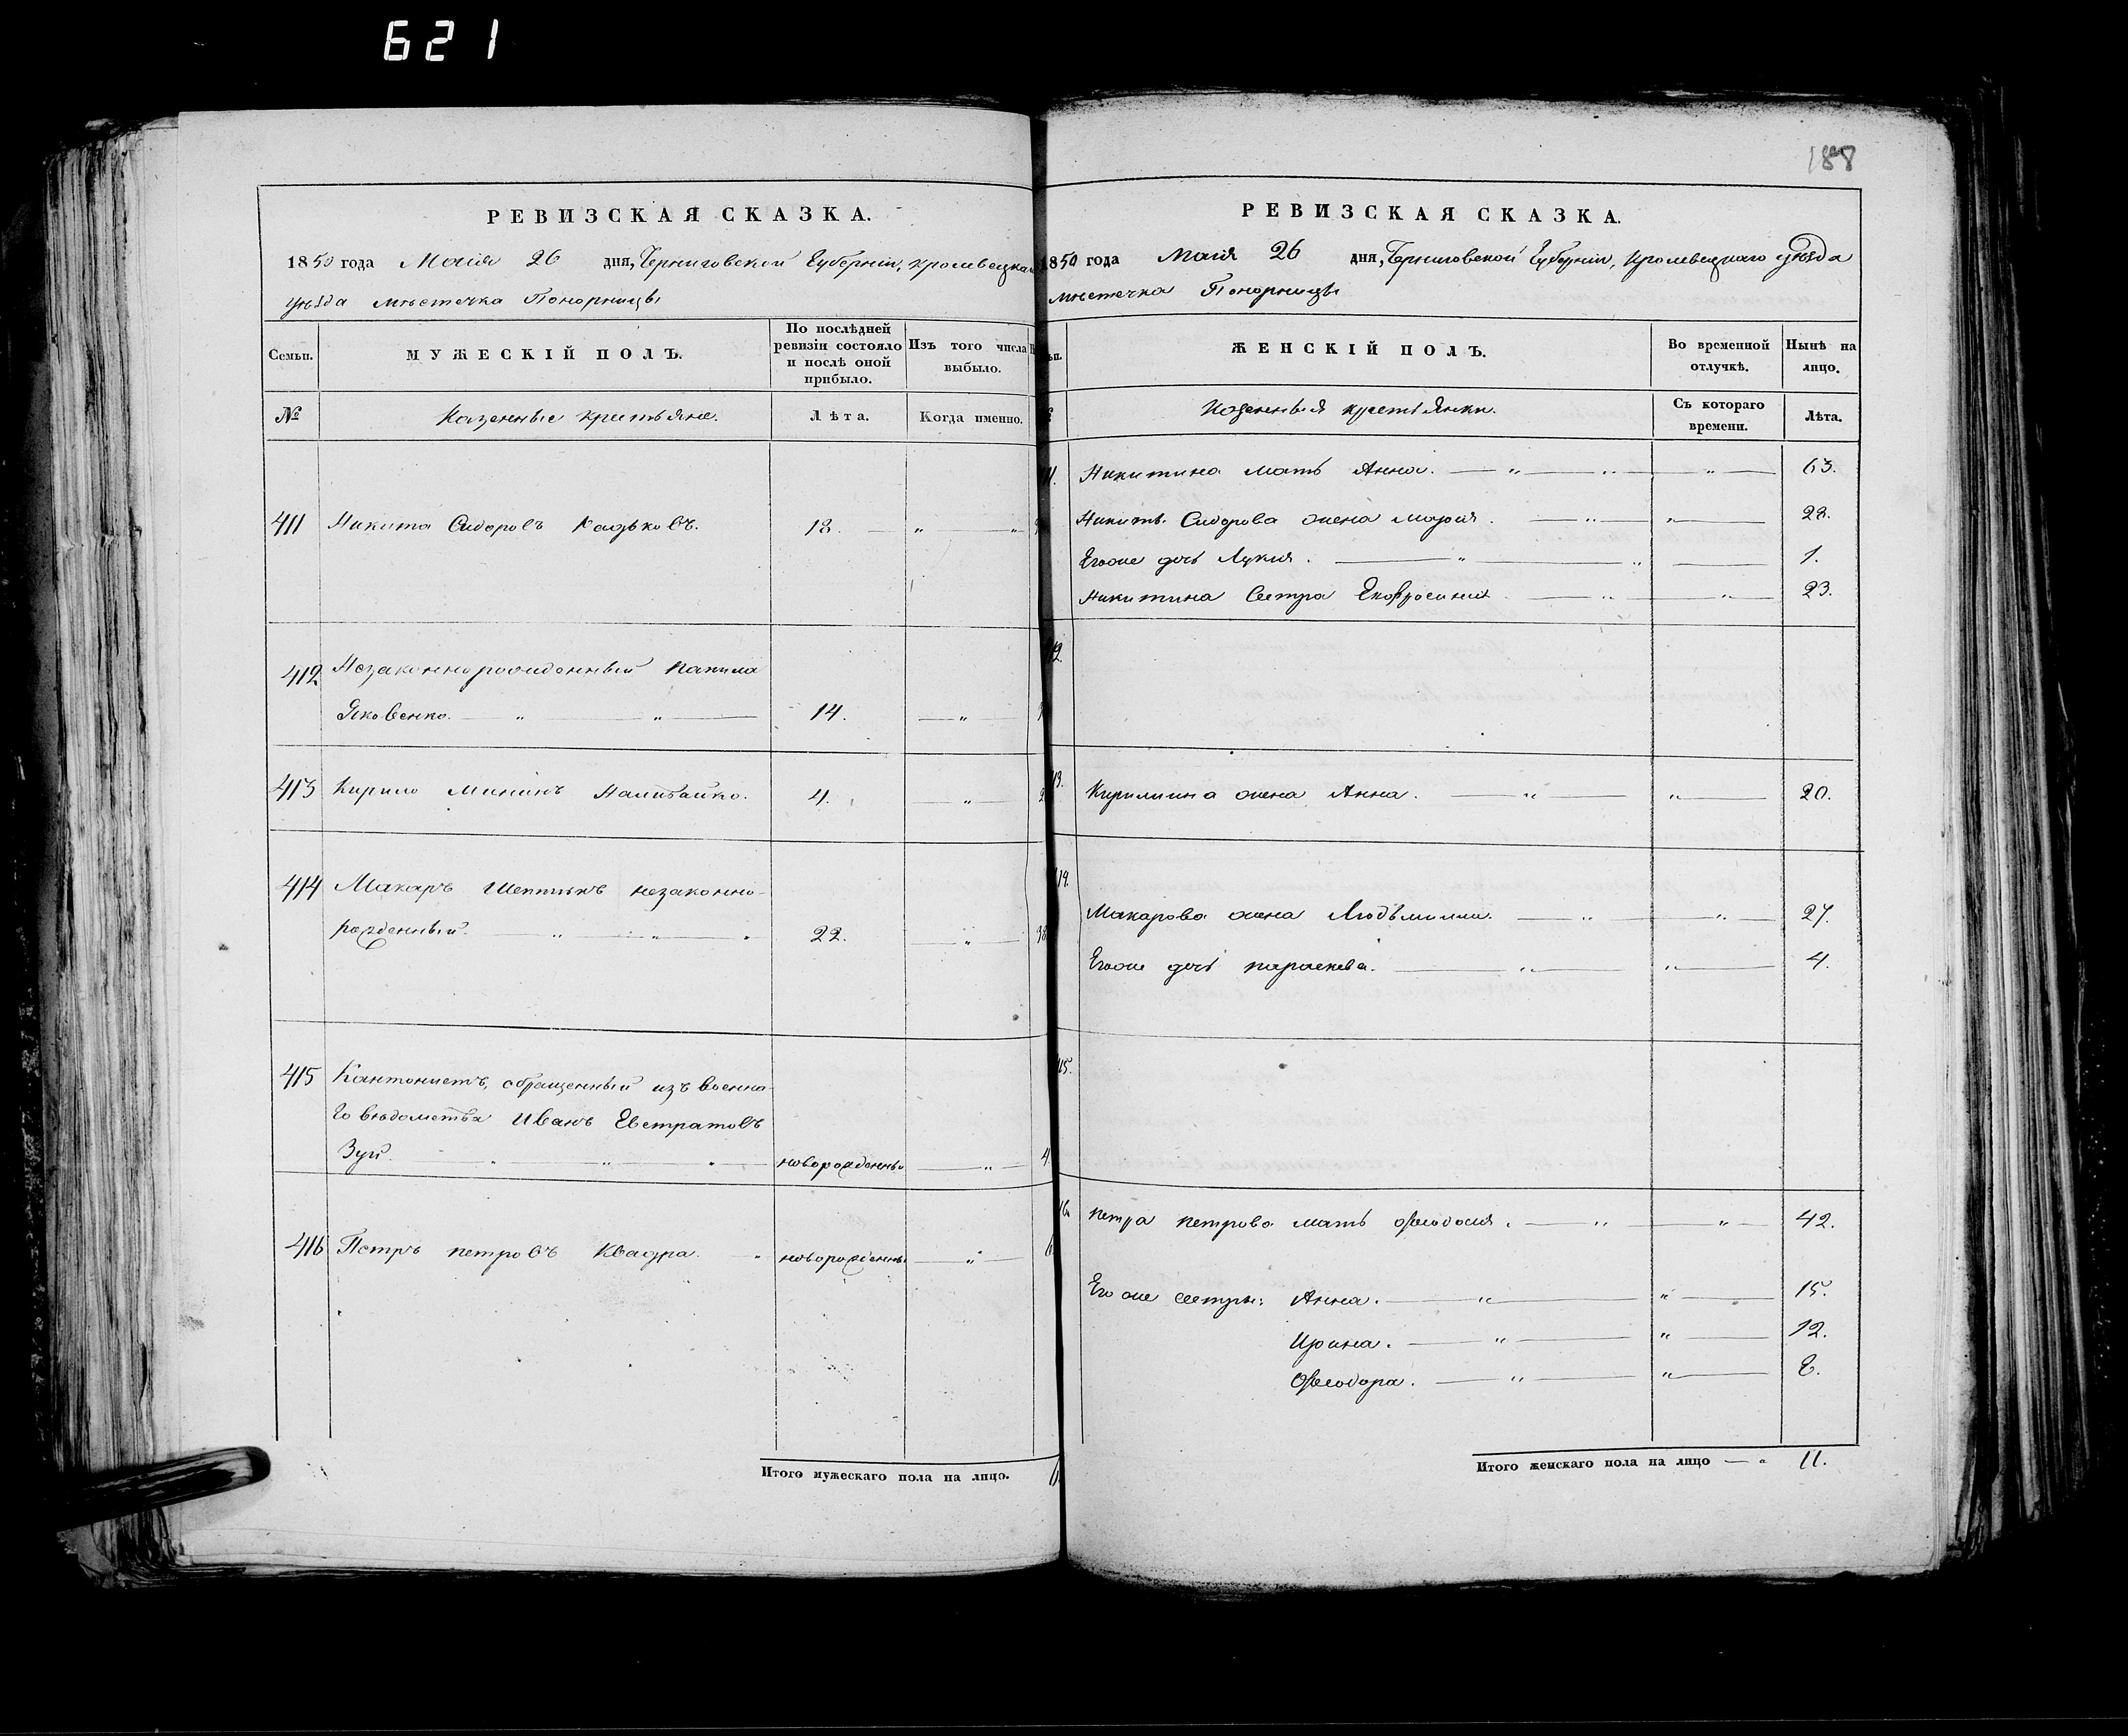 621
188
РЕВИЗСКАЯ СКАЗКА.
1850 года Маія 26 дня, Черниговской Губерніи, Кролевецкаго
уѣзда мѣстечка Понорницы
Семьи.
МУЖЕСКІЙ ПОЛЪ.
По послѣдней
ревизіи состояло
и послѣ оной
прибыло.
Изъ того числа
выбыло.
№
Казенные крестьяне.
Лѣта.
Когда именно.
411 Никита Сидоровъ 18.
412 Незаконнорожденный
Яковенко. 14.
413 Кирило Мининъ Наливайко. 4.
414 Макаръ незаконно-
рожденный. 22.
415 Кантонистъ, обращенный изъ военна-
го вѣдомства Иванъ Евстратовъ
Зуй. новорожденны
416 Петръ Петровъ Квадра. новорожденны
Итого мужескаго пола на лицо. 6.
РЕВИЗСКАЯ СКАЗКА.
1850 года Маія 26 дня, Черниговской Губерніи, Кролевецкаго уѣзда
мѣстечка Понорницы
ЖЕНСКІЙ ПОЛЪ.
Во временной
отлучкѣ.
Нынѣ на
лицо.
Казенныя крестьянки.
Съ котораго
времени.
Лѣта.
Никитина мать Анна. 63.
Никиты Сидорова жена Марія. 28.
Егоже дочь Лукія. 1.
Никитина Сестра Ефросинія 23.
Кирилина жена Анна. 20.
Макарова жена Людьмила. 27.
Егоже дочь Параскева. 4.
Петра Петрова мать Феодосія. 42.
Его же сестры: Анна. 15.
Ирина. 12.
Феодора. 8.
Итого женскаго пола на лицо 11.